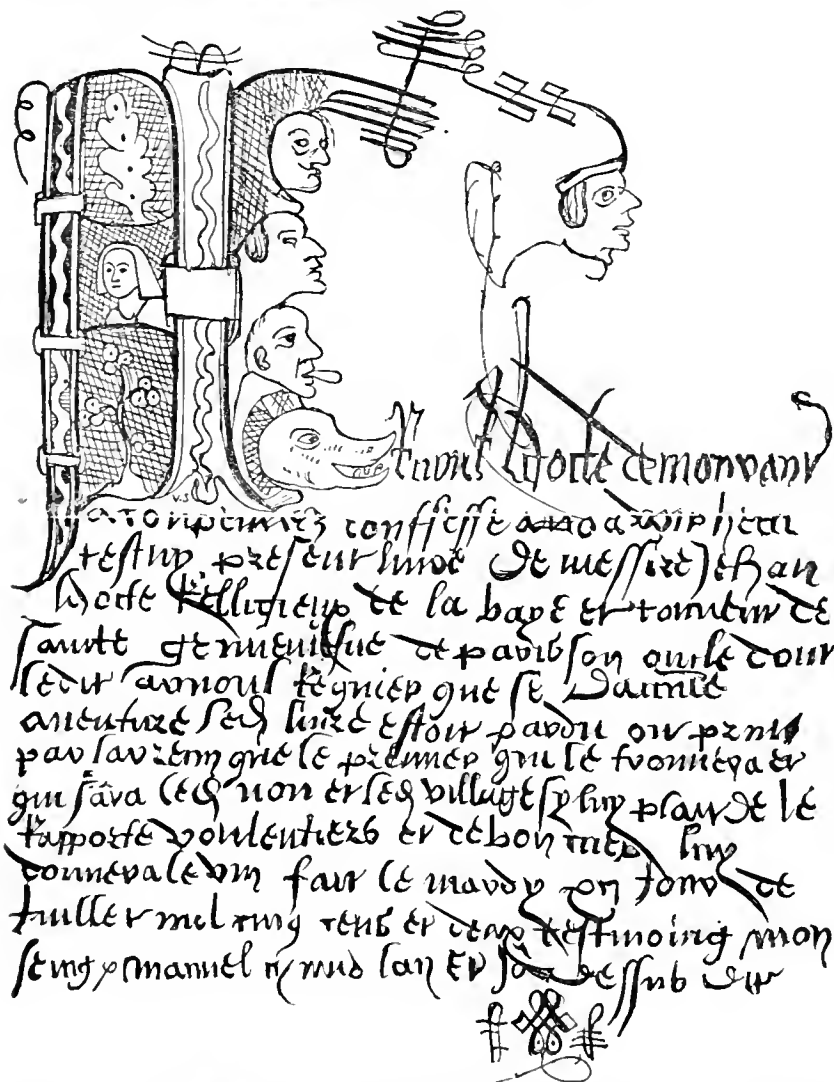 Arnoul hoste demorant
confesse
cestuy present liure de messire Jehan
hoste Relligieux de la baye et couuent de
saincte geneuiefue de paris son oncle dont
ledit arnoul requiert que se
auenture led liure estoit pardu ou prins
par larrecin que le premier qui le trouuera et
qui sara led non et led village sy luy plait de le
rapporte voulentiers et de bon cuer luy
donnera le vin fait le mardy jour de
juillet mil cinq cens et deux tesmoing mon
seing manuel cy mis lan et jour dessus dit